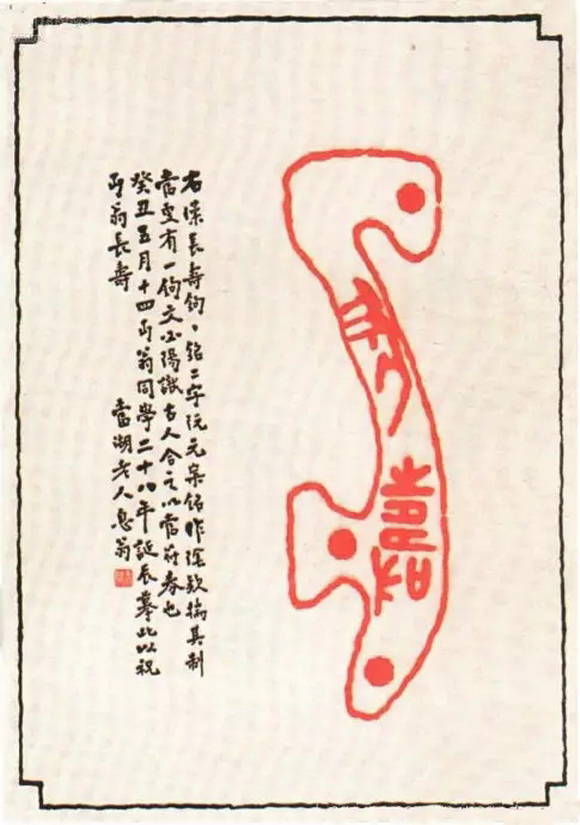 長壽
右漢長壽鉤、銘二字阮元案銘作陰欵揣其制
當更有一鉤文必陽識古人合之以當符券也
癸丑五月十四丏翁同學二十八年誕辰摹此以祝
丏翁長壽
當湖老人息翁